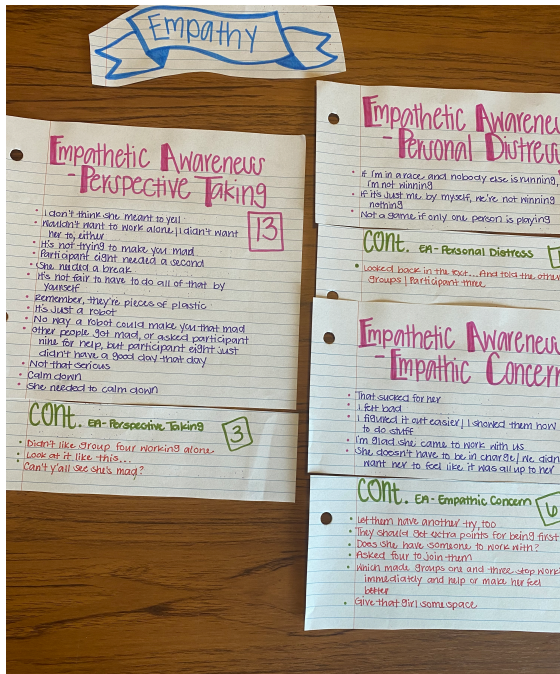 Empathy
Empathetic Awareness
- Perspective Taking
13
• I don't think she meant to yell
• Wouldn't want to work alone, I didn't want
her to, either
• It's not trying to make you mad
• Participant eight needed a second
• She needed a break
• It's not fair to have to do all of that by
yourself
• Remember, they're pieces of plastic
• It's Just a robot
• No way a robot could make you that mad
• other people got mad, or asked participant
nine for help, but participant eight just
didn't have a good day that day
• Not that serious
• Calm down
• She needed to calm down
CONT. EA- Perspective Taking
3
• Didn't like group four working alone
• Look at it like this...
• Can't y'all see she's mad?
Empathetic
- Personal
• If I'm in a race and nobody else is running,
I'm not winning
• If it's just me by myself, we're not winning
nothing
• Not a game if only one person is playing
CONT. EA- Personal Distress
• Looked back in the four... And told the other
groups | Participant three
Empathetic
- Empathic
• That sucked for her
• I felt bad
• I figured it out easier | I showed them how
to do stuff
• I'm glad she came to work with us
• She doesn't have to be in charge / We didn
want her to feel like it was all up to her
CONT. EA- Empathic Concern
6
• Let them have another try, too
• They should get extra points for being first
• Does she have someone to work with?
• Asked four to join them
• Which made groups one and three stop
immediately and help or make her feel
better
• Give that girl some space